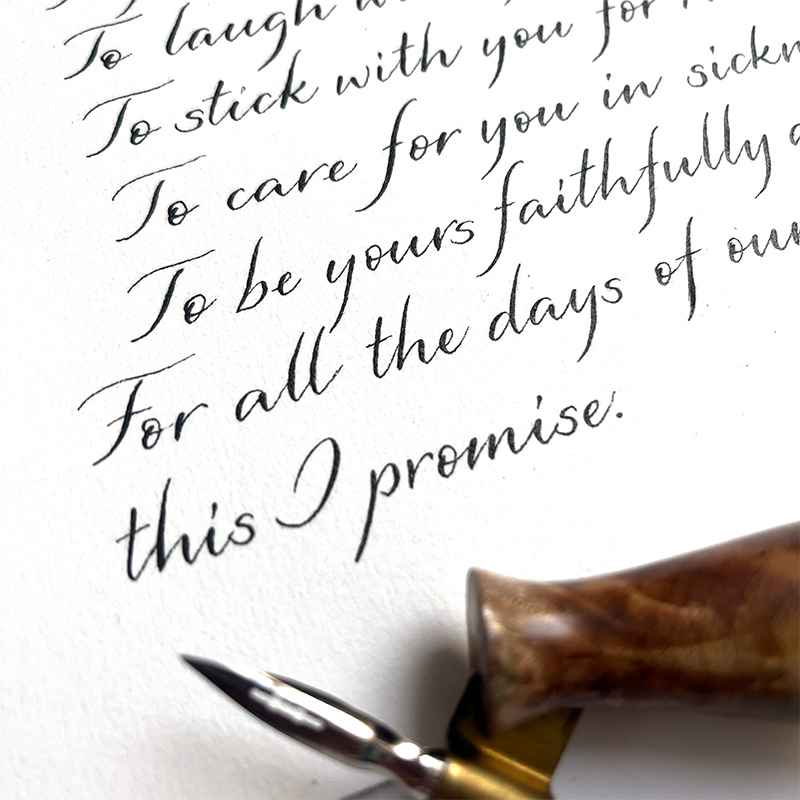 To laugh
To stick with you for
To care for you in
To be yours faithfully
For all the days of our
this I promise.